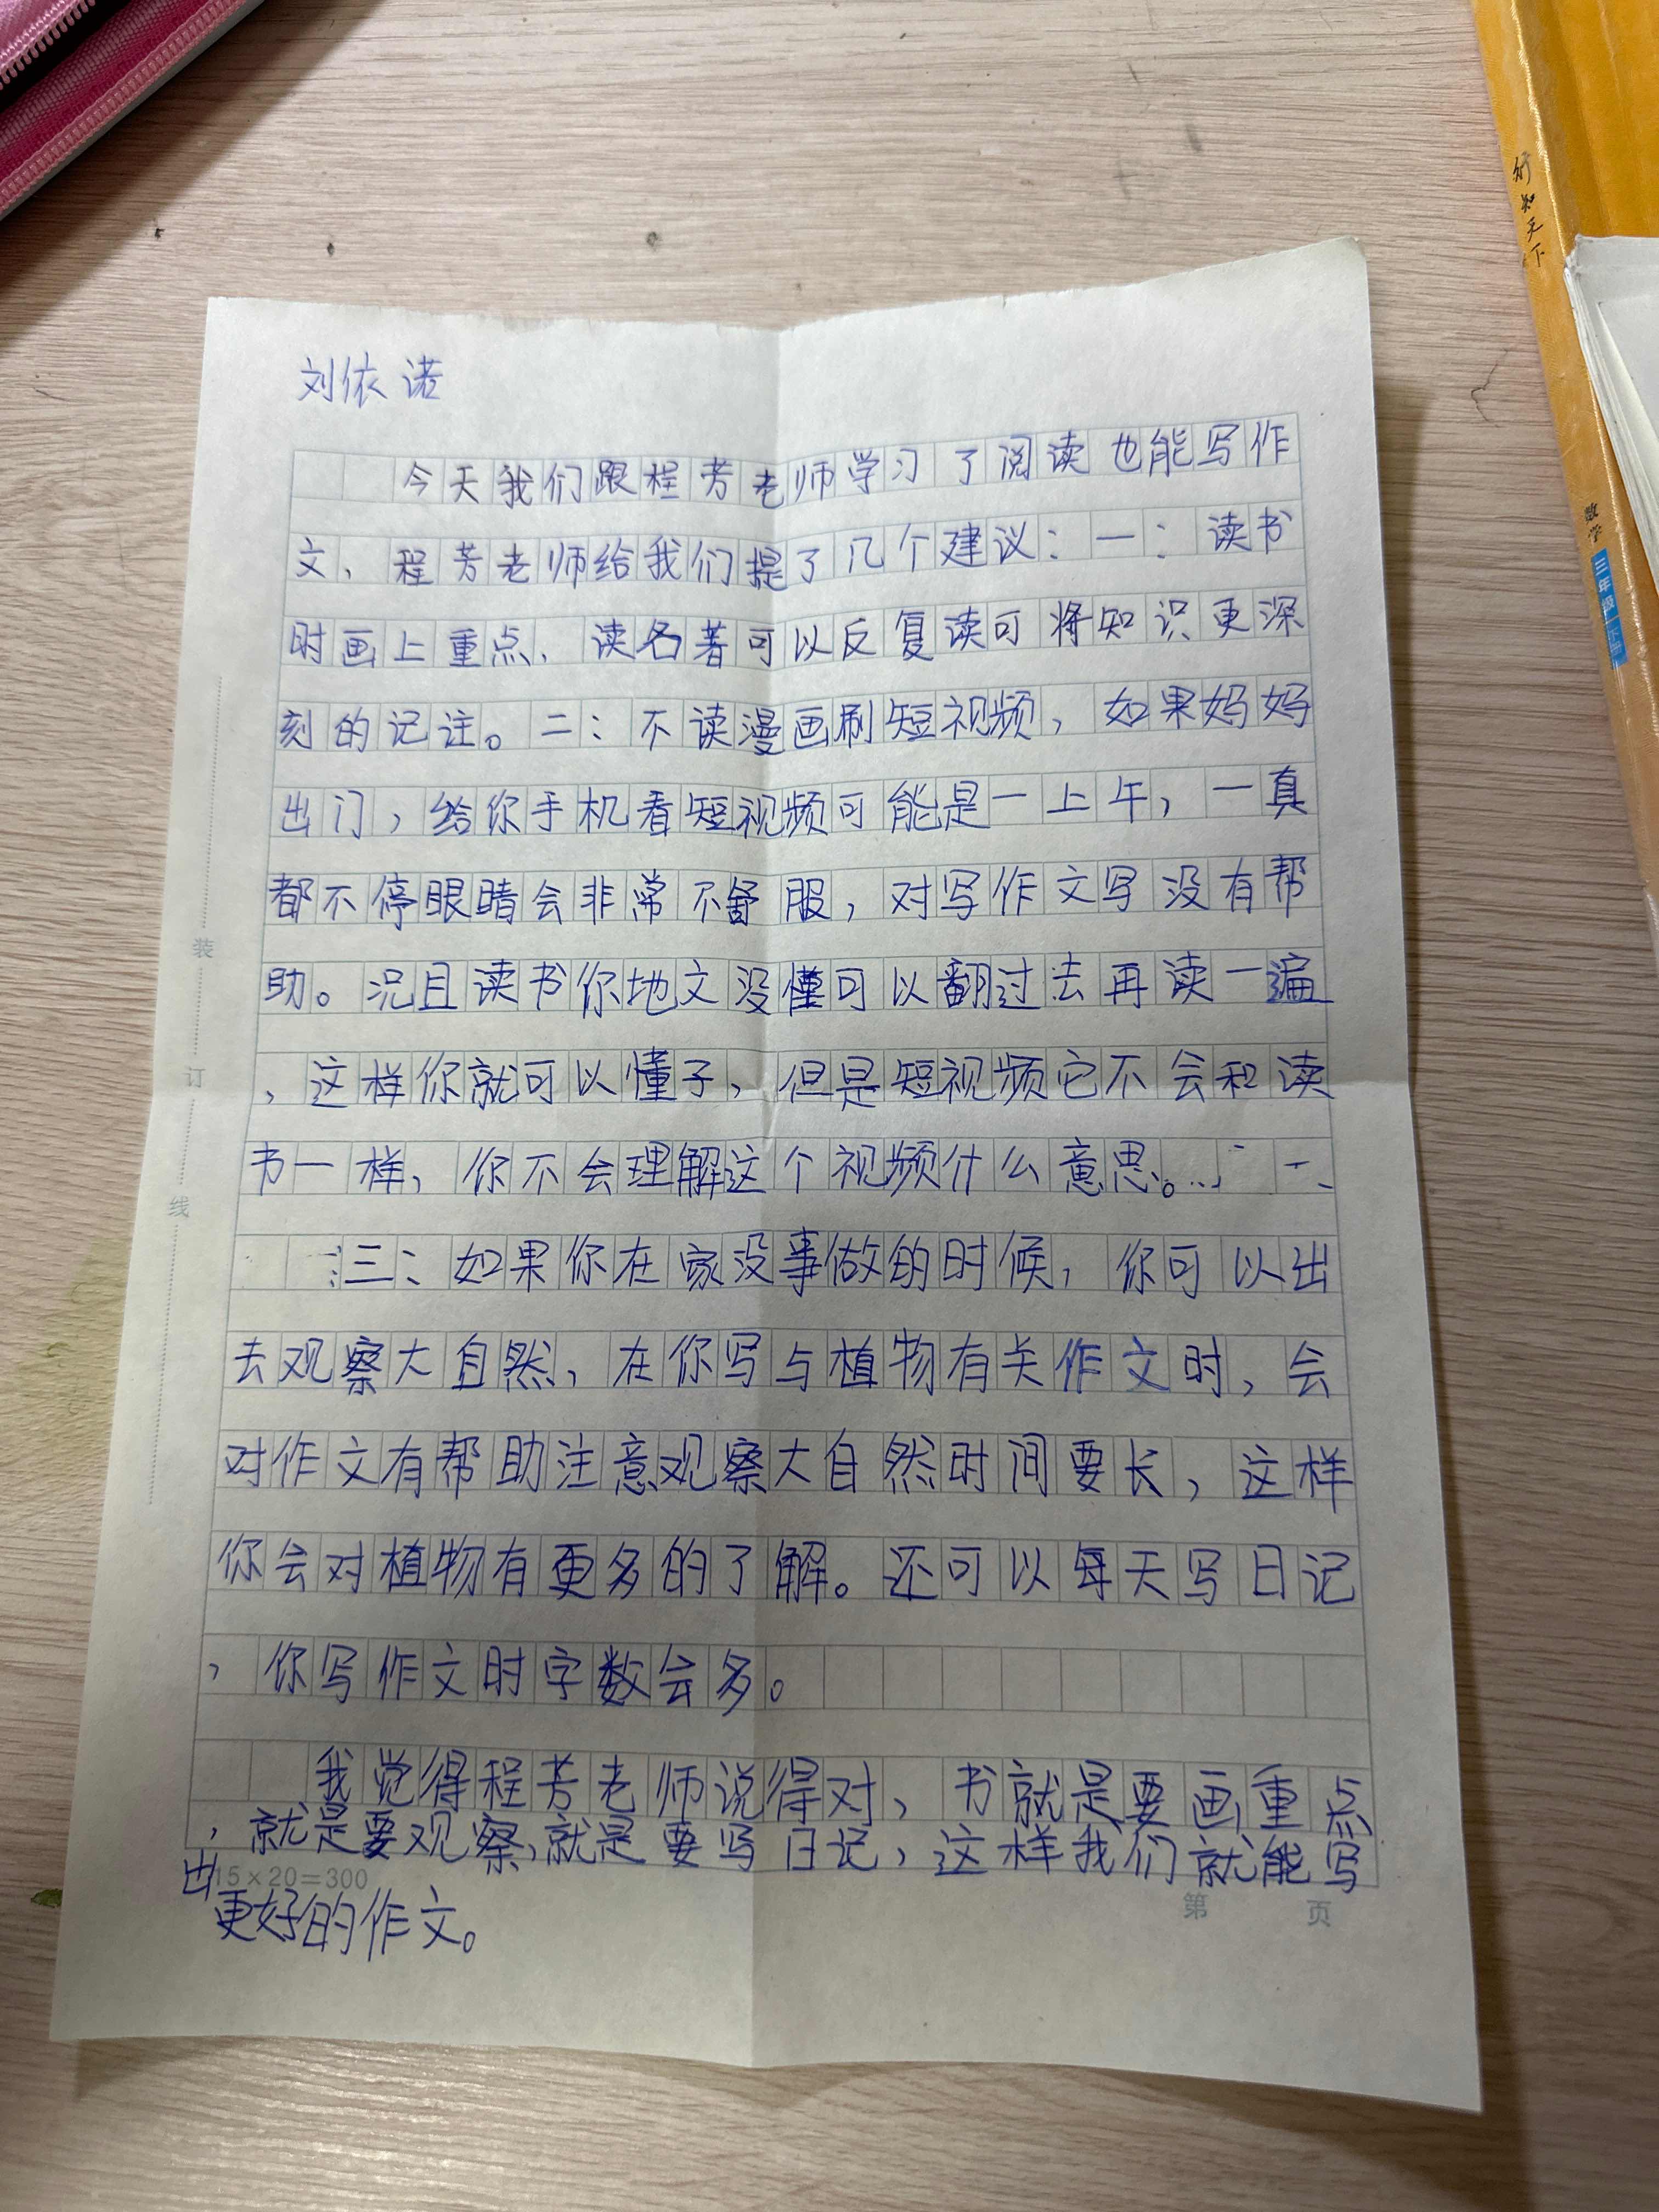 刘依诺
今天我们跟程芳老师学习了阅读也能写作
文、程芳老师给我们提了几个建议：一：读书
时画上重点、读名著可以反复读可将知识更深
刻的记注。二：不读漫画刷短视频，如果妈妈
出门，给你手机看短视频可能是一上午，一真
都不停眼睛会非常不舒服，对写作文写没有帮
助。况且读书你地文没懂可以翻过去再读一遍
，这样你就可以懂子，但是短视频它不会和读
书一样，你不会理解这个视频什么意思。
三：如果你在家没事做的时候，你可以出
去观察大自然、在你写与植物有关作文时，会
对作文有帮助注意观察大自然时间要长，这样
你会对植物有更多的了解。还可以每天写日记
，你写作文时字数会多。
我觉得程芳老师说得对、书就是要画重点
，就是要观察，就是要写日记，这样我们就能写
出更好的作文。
15×20=300
第 页
装
订
线
知天下
数学
三年级
下册